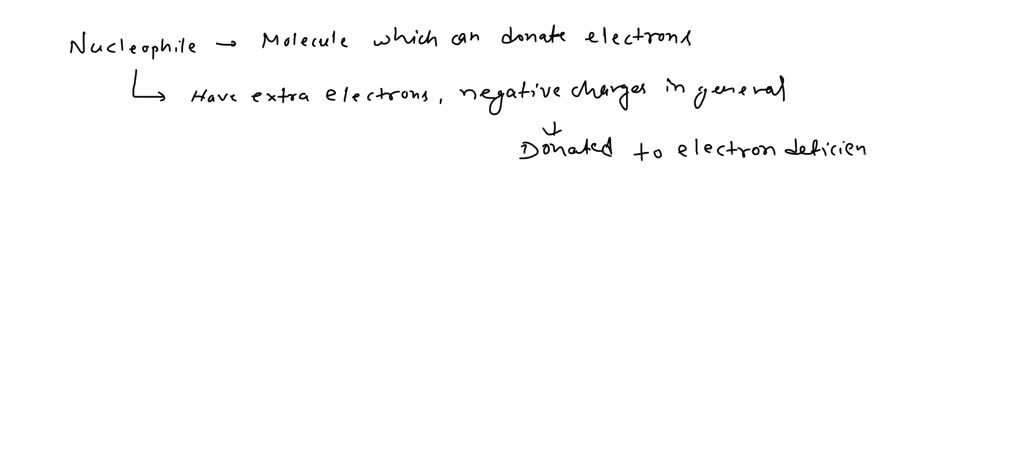 Nucleophile → Molecule which can donate electrons
↳ Have extra electrons, negative charges in general
↓
Donated to electron deficien